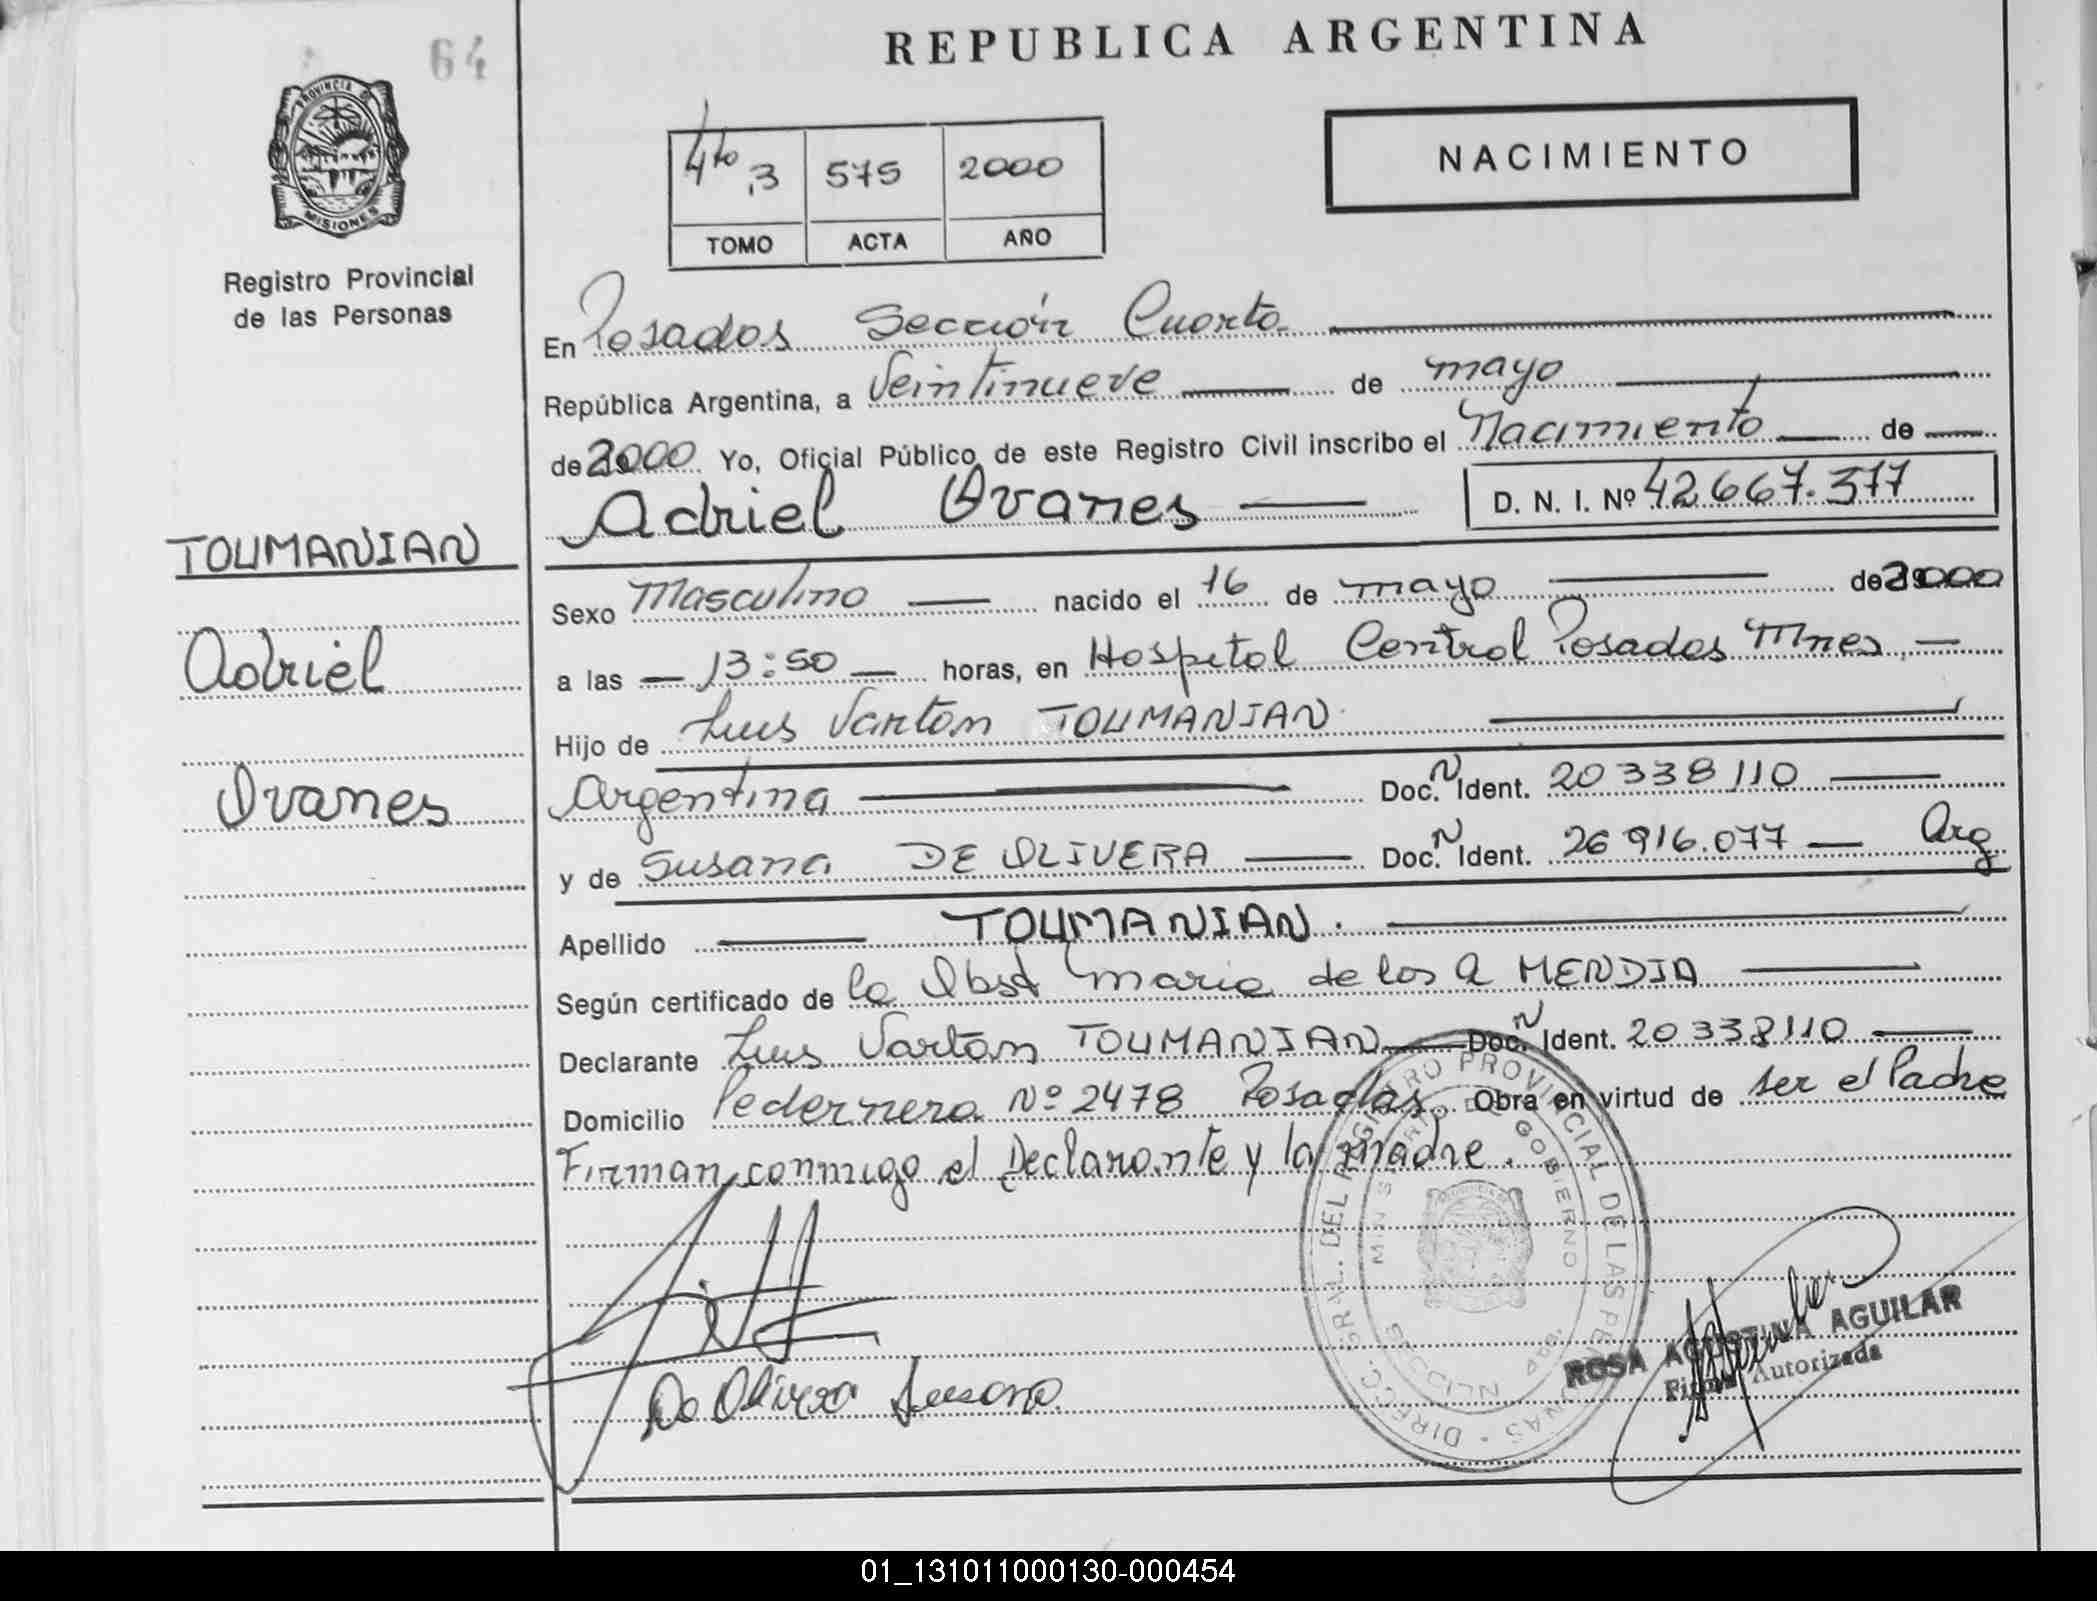 64
REPUBLICA ARGENTINA
PROVINCIA DE
MISIONES
Registro Provincial
de las Personas
4to ,3 575 2000
TOMO ACTA AÑO
NACIMIENTO
En Posadas Sección Cuarta
República Argentina, a Veintinueve de mayo
de 2000 Yo, Oficial Público de este Registro Civil inscribo el Nacimiento de
Adriel Ovanes D. N. I. Nº 42.667.377
TOUMANIAN
Adriel
Ovanes
Sexo Masculino nacido el 16 de mayo de 2000
a las 13:50 horas, en Hospital Central Posadas Mnes
Hijo de Luis Vartan TOUMANIAN
Argentina Doc. N Ident. 20 338 110
y de Susana DE OLIVERA Doc. N Ident. 26 916.077 Arg
Apellido TOUMANIAN.
Según certificado de la Obst Maria de los A MENDIA
Declarante Luis Vartan TOUMANIAN Doc. N Ident. 20 338110
Domicilio Pedernera Nº 2478 Posadas. Obra en virtud de ser el Padre
Firman conmigo el Declarante y la madre.
DIRECC. GRAL. DEL REGISTRO PROVINCIAL DE LAS PERSONAS
GOBIERNO
De Olivera Susana
ROSA AGUSTINA AGUILAR
Firma Autorizada
01_131011000130-000454